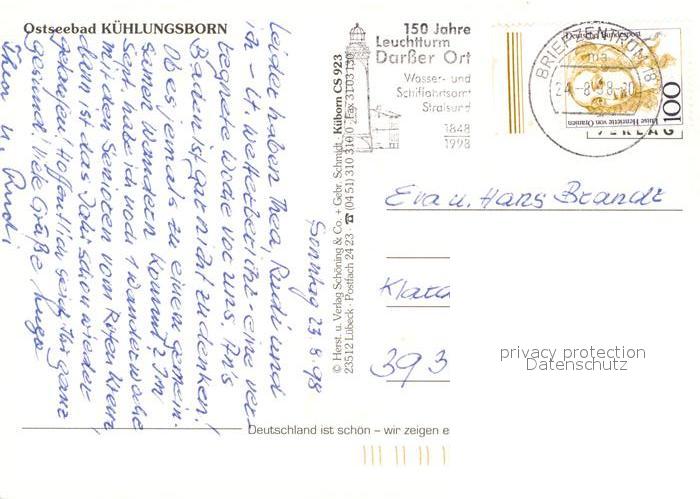 Ostseebad KÜHLUNGSBORN
Sonntag 23.8.98
Leider haben Thea, Rudi und
ich - lt. Wetterbericht eine ver-
regnete Woche vor uns. An's
Baden ist gar nicht zu denken!
Ob es jemals zu einem gemein-
samen Wandern kommt? Im
Sept. habe ich noch 1 Wanderwoche
mit den Senioren vom Roten Kreuz
dann ist das Jahr schon wieder
gelaufen! Hoffentlich seid Ihr ganz
gesund! Liebe Grüße Inge
Thea u. Rudi
© Herst. u. Verlag Schöning & Co. + Gebr. Schmidt · Küborn CS 923
23512 Lübeck · Postfach 24 23 · ☎ (04 51) 310 310 · Fax 3103 150
150 Jahre
Leuchtturm
Darßer Ort
Wasser- und
Schiffahrtsamt
Stralsund
1848
1998
BRIEFZENTRUM 18
24.-8.98-20
Deutsche Bundespost
100
Luise Henriette von Oranien
VERLAG
Eva u. Hans Brandt
393
privacy protection
Datenschutz
Deutschland ist schön – wir zeigen e